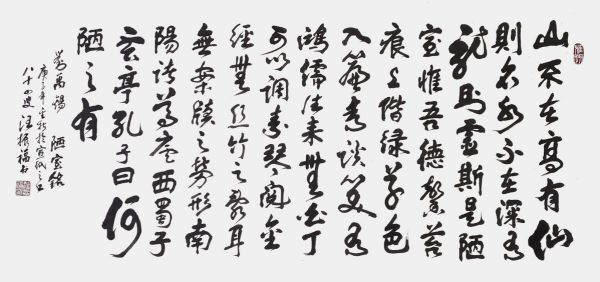 山不在高有仙
則名水不在深有
龍則靈斯是陋
室惟吾德馨苔
痕上階綠草色
入簾青談笑有
鴻儒往來無白丁
可以調素琴閱金
經無絲竹之亂耳
無案牘之勞形南
陽諸葛廬西蜀子
雲亭孔子曰何
陋之有
劉禹錫 陋室銘
庚子年金秋於宣城之
八十四叟汪振福书